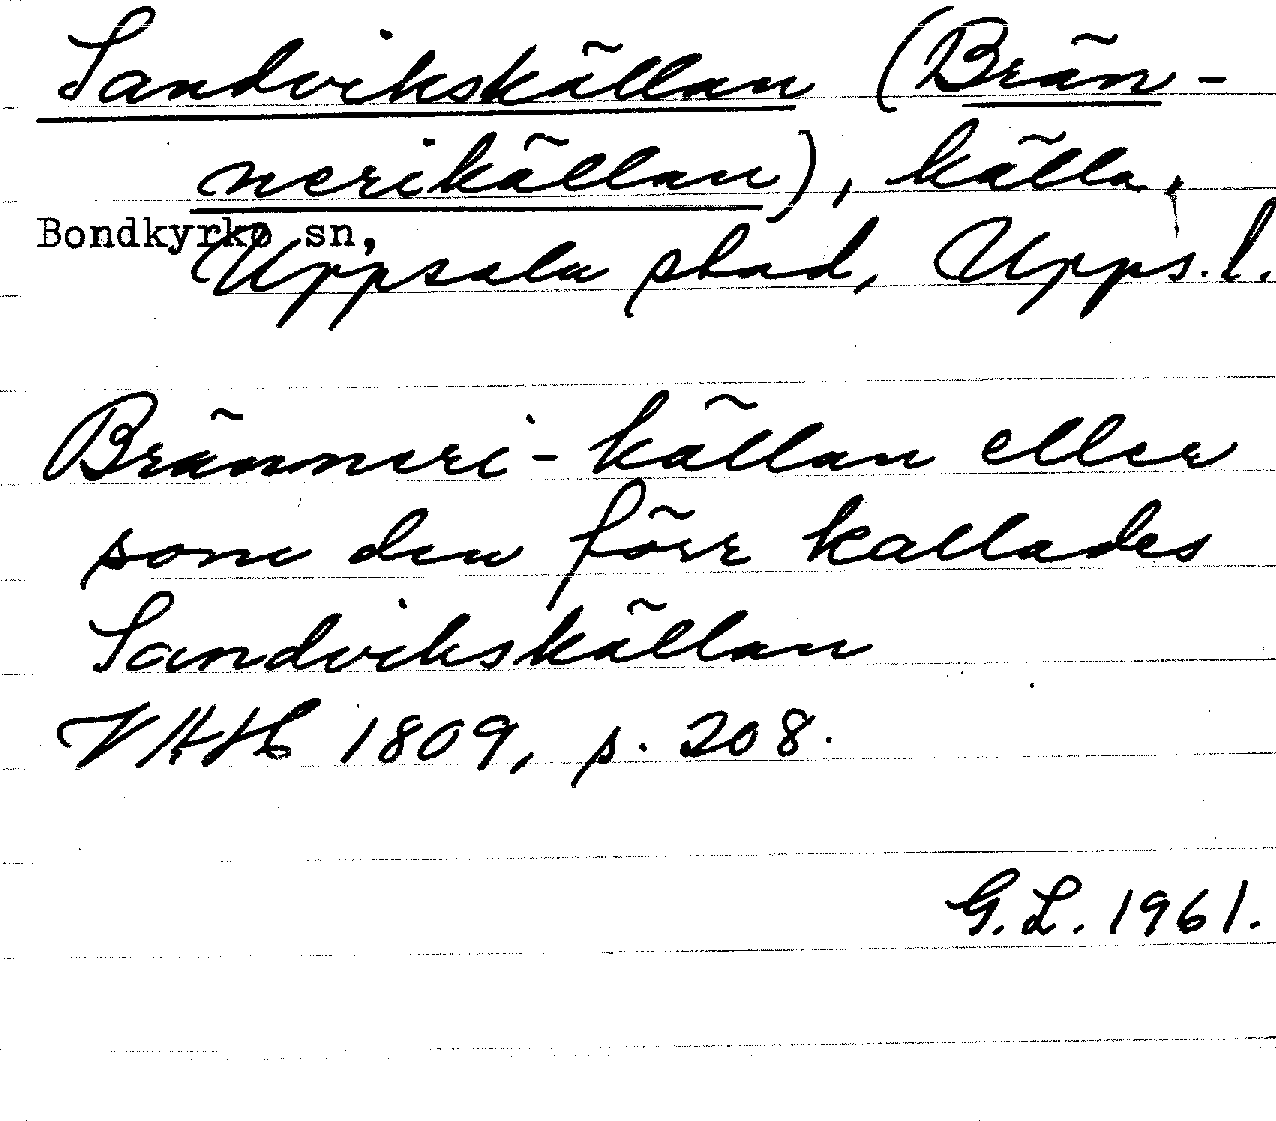 Sandvikskällan (Brän-
nerikällan), källa,
Bondkyrko sn,
Uppsala stad, Upps. l.
Bränneri-källan eller
som den förr kallades
Sandvikskällan
VAH 1809, s. 208.
G. L. 1961.